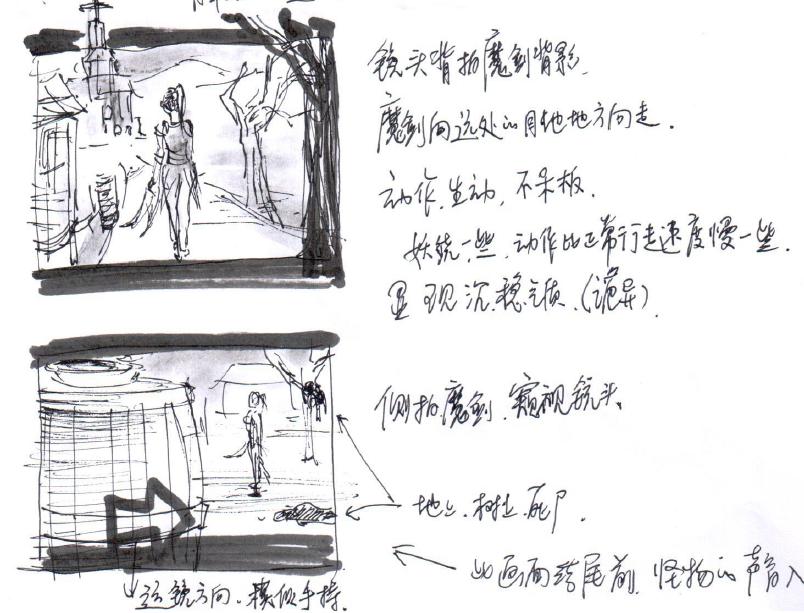 镜头背拍魔剑背影.
魔剑向远处的目的地方向走.
动作.生动,不呆板.
妖艳一些,动作比正常行走速度慢一些.
显现沉稳气质.(诡异).
侧拍魔剑.窥视镜头.
地上.树上死尸.
画面结尾前,怪物的声音入
运镜方向.模似手持.